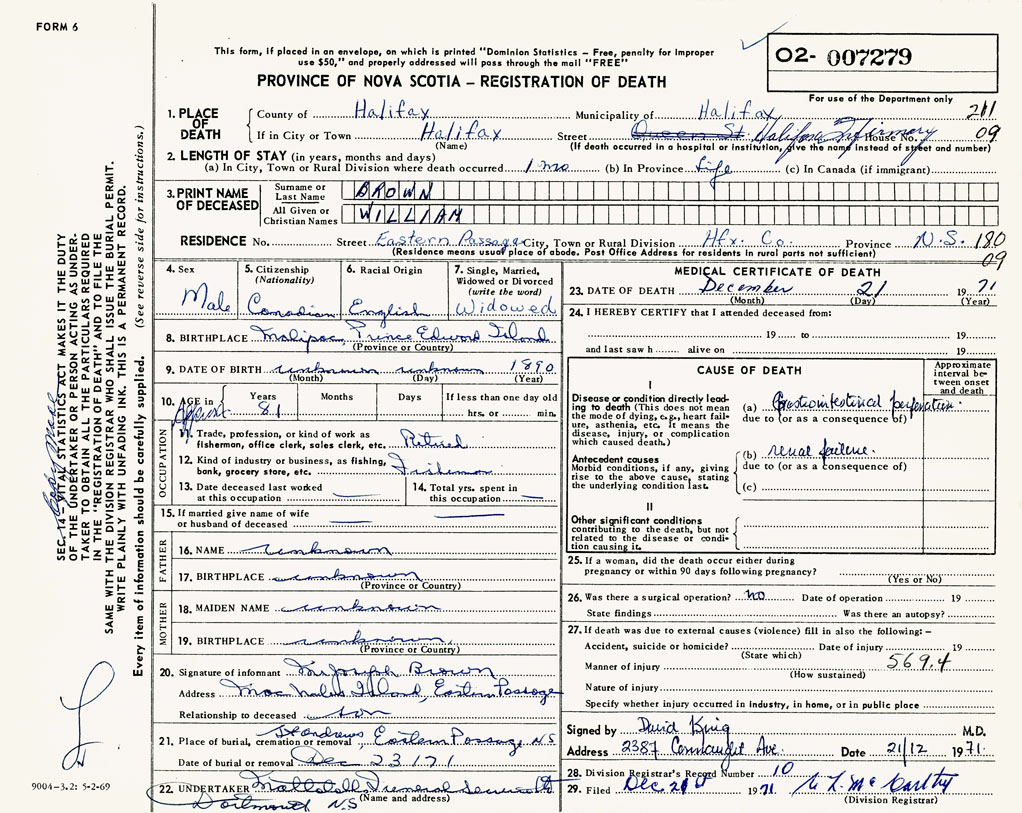 FORM 6
This form, if placed in an envelope, on which is printed "Dominion Statistics – Free, penalty for improper
use $50," and properly addressed will pass through the mail "FREE"
PROVINCE OF NOVA SCOTIA – REGISTRATION OF DEATH
02- 007279
For use of the Department only
211
09
1. PLACE OF DEATH
County of Halifax Municipality of Halifax
If in City or Town Halifax Street Queen St. Halifax Infirmary House No.
(Name) (If death occurred in a hospital or institution, give the name instead of street and number)
2. LENGTH OF STAY (in years, months and days)
(a) In City, Town or Rural Division where death occurred 1 mo (b) In Province Life (c) In Canada (if immigrant)
3. PRINT NAME OF DECEASED
Surname or Last Name BROWN
All Given or Christian Names WILLIAM
RESIDENCE No. Street Eastern Passage City, Town or Rural Division Hfx. Co. Province N.S. 180
09
(Residence means usual place of abode. Post Office Address for residents in rural parts not sufficient)
4. Sex
Male
5. Citizenship
(Nationality)
Canadian
6. Racial Origin
English
7. Single, Married,
Widowed or Divorced
(write the word)
Widowed
8. BIRTHPLACE Prince Edward Island
(Province or Country)
9. DATE OF BIRTH unknown unknown 1890
(Month) (Day) (Year)
10. AGE in Years Months Days If less than one day old
81 hrs. or min.
OCCUPATION
11. Trade, profession, or kind of work as
fisherman, office clerk, sales clerk, etc. Retired
12. Kind of industry or business, as fishing,
bank, grocery store, etc. Fisherman
13. Date deceased last worked
at this occupation
14. Total yrs. spent in
this occupation
15. If married give name of wife
or husband of deceased
FATHER
16. NAME unknown
17. BIRTHPLACE unknown
(Province or Country)
MOTHER
18. MAIDEN NAME unknown
19. BIRTHPLACE unknown
(Province or Country)
20. Signature of informant Joseph Brown
Address Island, Eastern Passage
Relationship to deceased son
21. Place of burial, cremation or removal St Andrews Eastern Passage N.S
Date of burial or removal Dec 23 171
22. UNDERTAKER Funeral
(Name and address)
Dartmouth N.S
MEDICAL CERTIFICATE OF DEATH
23. DATE OF DEATH December 21 1971
(Month) (Day) (Year)
24. I HEREBY CERTIFY that I attended deceased from:
19 to 19
and last saw h alive on 19
CAUSE OF DEATH
Approximate
interval be-
tween onset
and death
I
Disease or condition directly lead-
ing to death (This does not mean
the mode of dying, e.g., heart fail-
ure, asthenia, etc. It means the
disease, injury, or complication
which caused death.)
(a) Gastrointestinal perforation
due to (or as a consequence of)
Antecedent causes
Morbid conditions, if any, giving
rise to the above cause, stating
the underlying condition last.
(b) renal failure.
due to (or as a consequence of)
(c)
II
Other significant conditions
contributing to the death, but not
related to the disease or condi-
tion causing it.
25. If a woman, did the death occur either during
pregnancy or within 90 days following pregnancy?
(Yes or No)
26. Was there a surgical operation? no Date of operation 19
State findings Was there an autopsy?
27. If death was due to external causes (violence) fill in also the following: –
Accident, suicide or homicide? Date of injury 19
(State which)
569.4
Manner of injury
(How sustained)
Nature of injury
Specify whether injury occurred in industry, in home, or in public place
Signed by David King M.D.
Address 2387 Connaught Ave. Date 21/12 1971.
28. Division Registrar's Record Number 10
29. Filed Dec. 21st 1971 McCarthy
(Division Registrar)
SEC. 14 – VITAL STATISTICS ACT MAKES IT THE DUTY
OF THE UNDERTAKER OR PERSON ACTING AS UNDER-
TAKER TO OBTAIN ALL THE PARTICULARS REQUIRED
IN THE "REGISTRATION OF DEATH" AND TO FILE THE
SAME WITH THE DIVISION REGISTRAR WHO SHALL ISSUE THE BURIAL PERMIT.
WRITE PLAINLY WITH UNFADING INK. THIS IS A PERMANENT RECORD.
Every item of information should be carefully supplied. (See reverse side for instructions.)
9004-3.2: 5-2-69